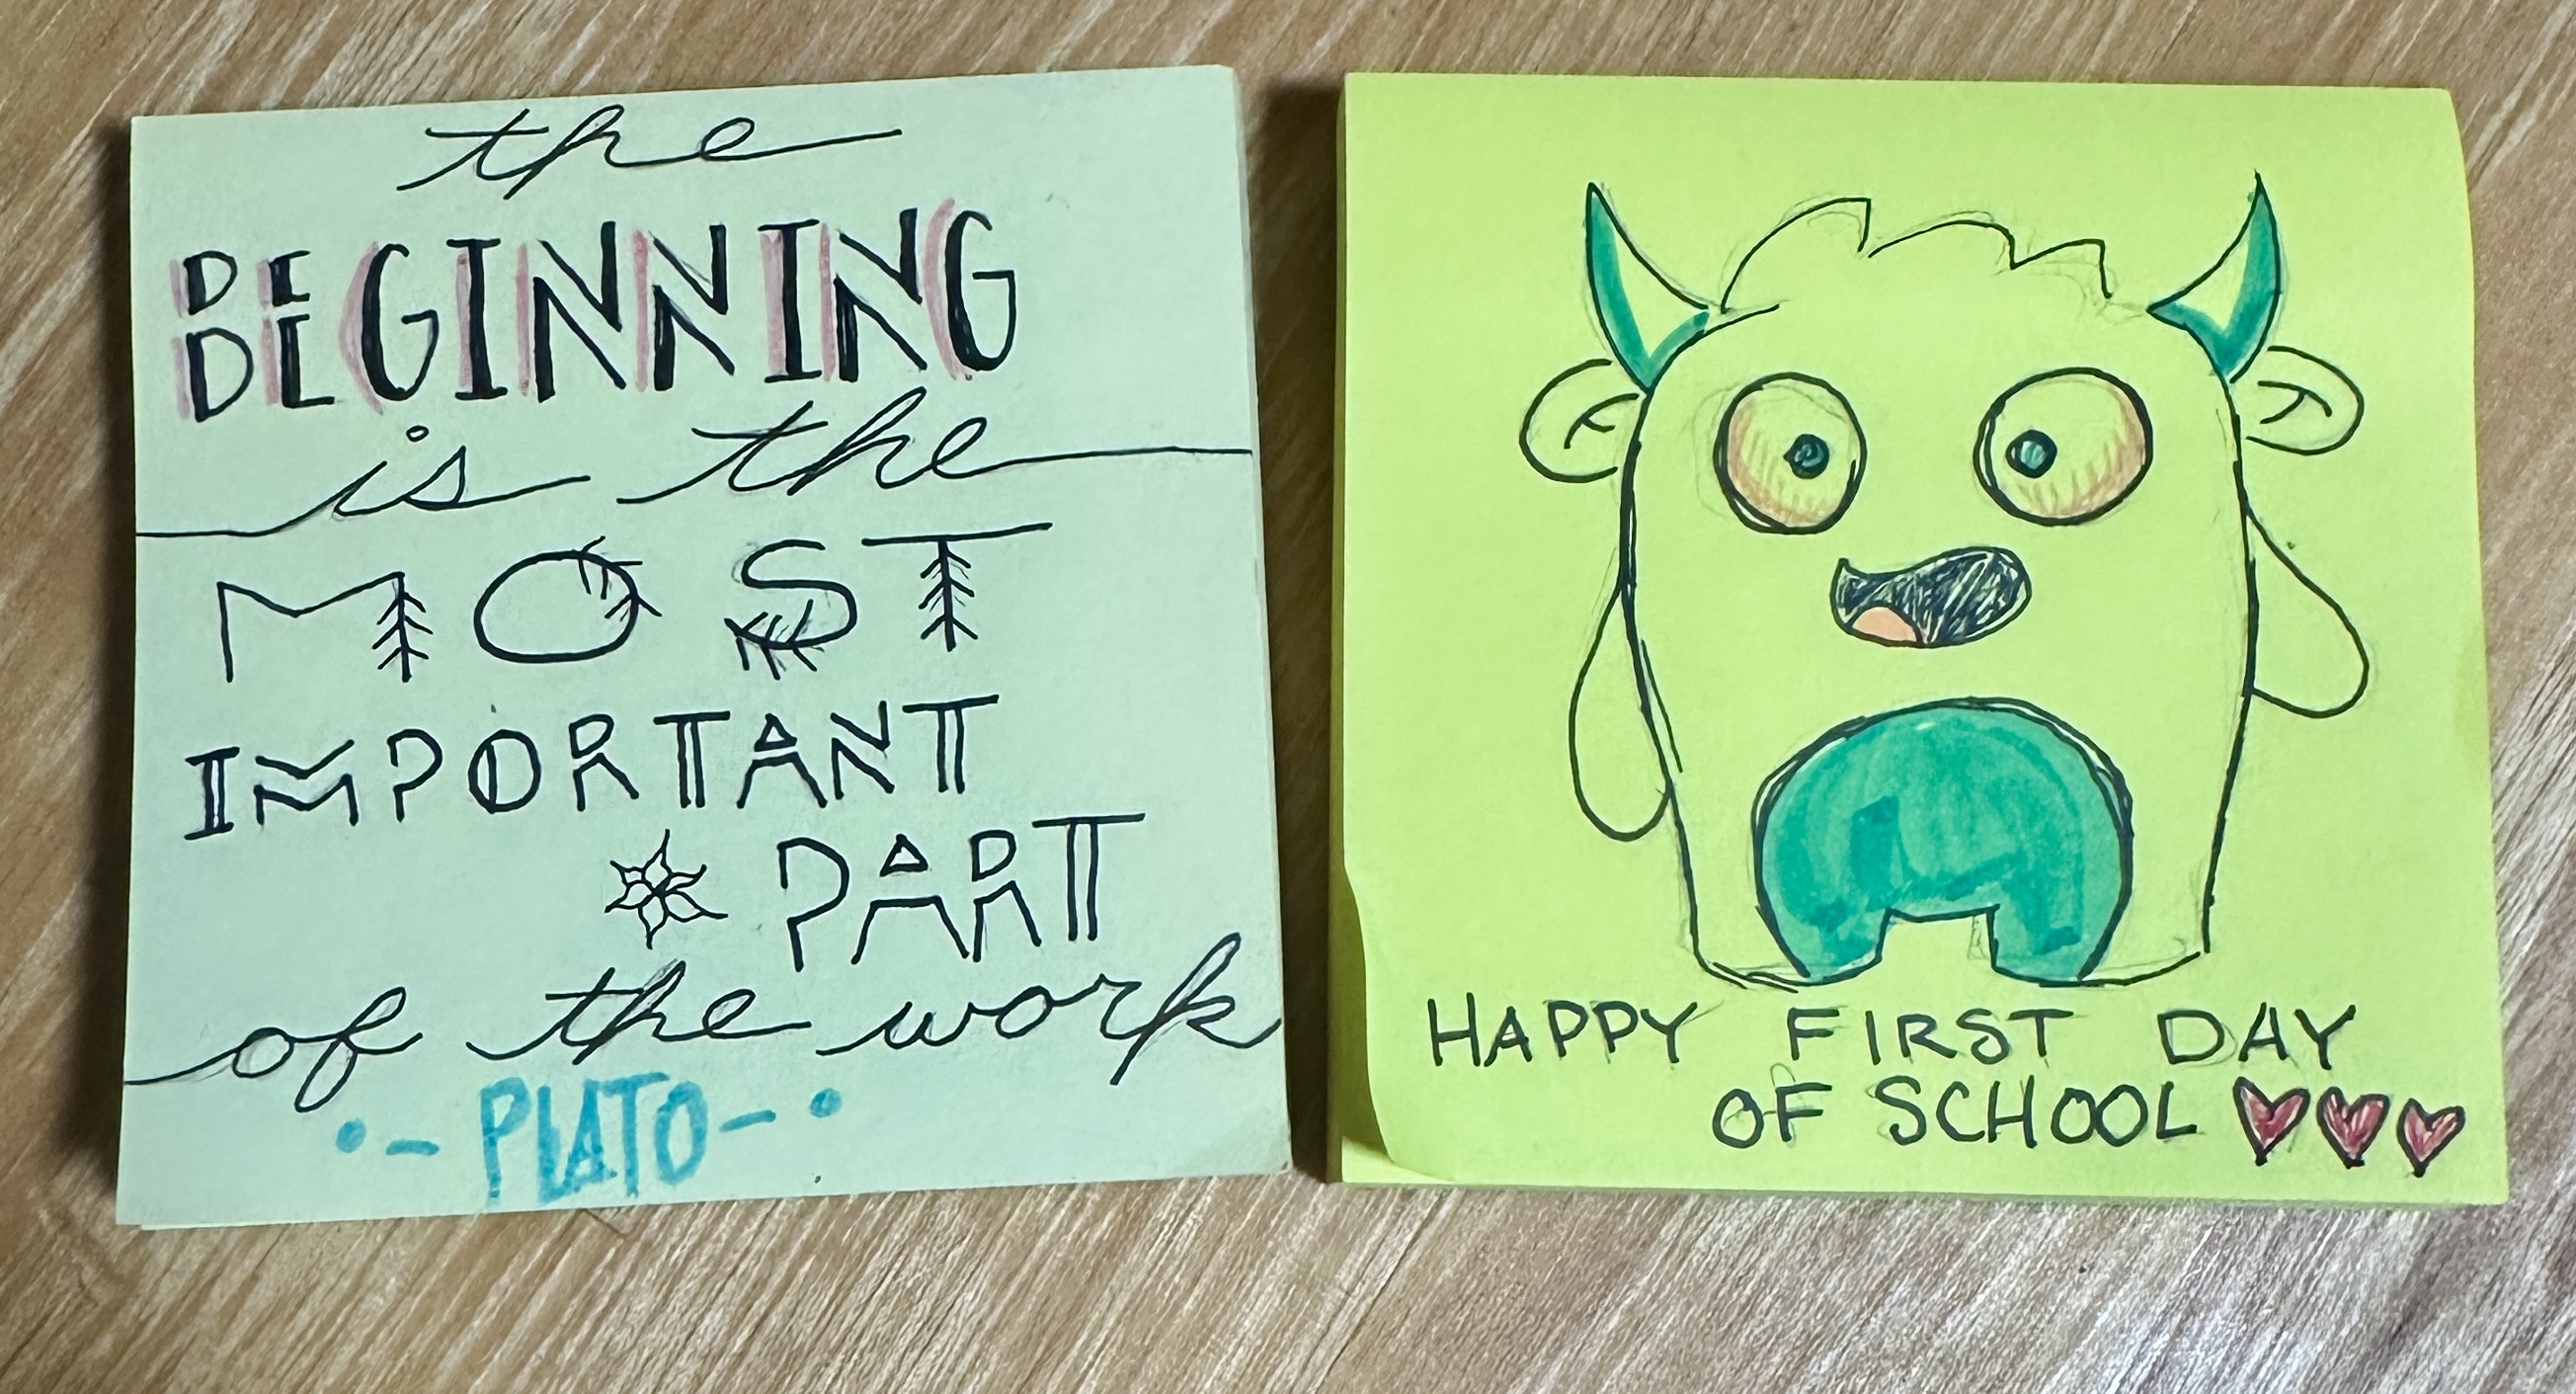 the
BEGINNING
is the
MOST
IMPORTANT
PART
of the work
•- PLATO -•
HAPPY FIRST DAY
OF SCHOOL